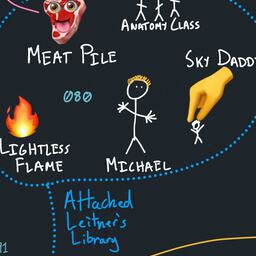 ANATOMY CLASS
MEAT PILE
SKY DADD
080
LIGHTLESS
FLAME
MICHAEL
Attached
Leitner's
Library